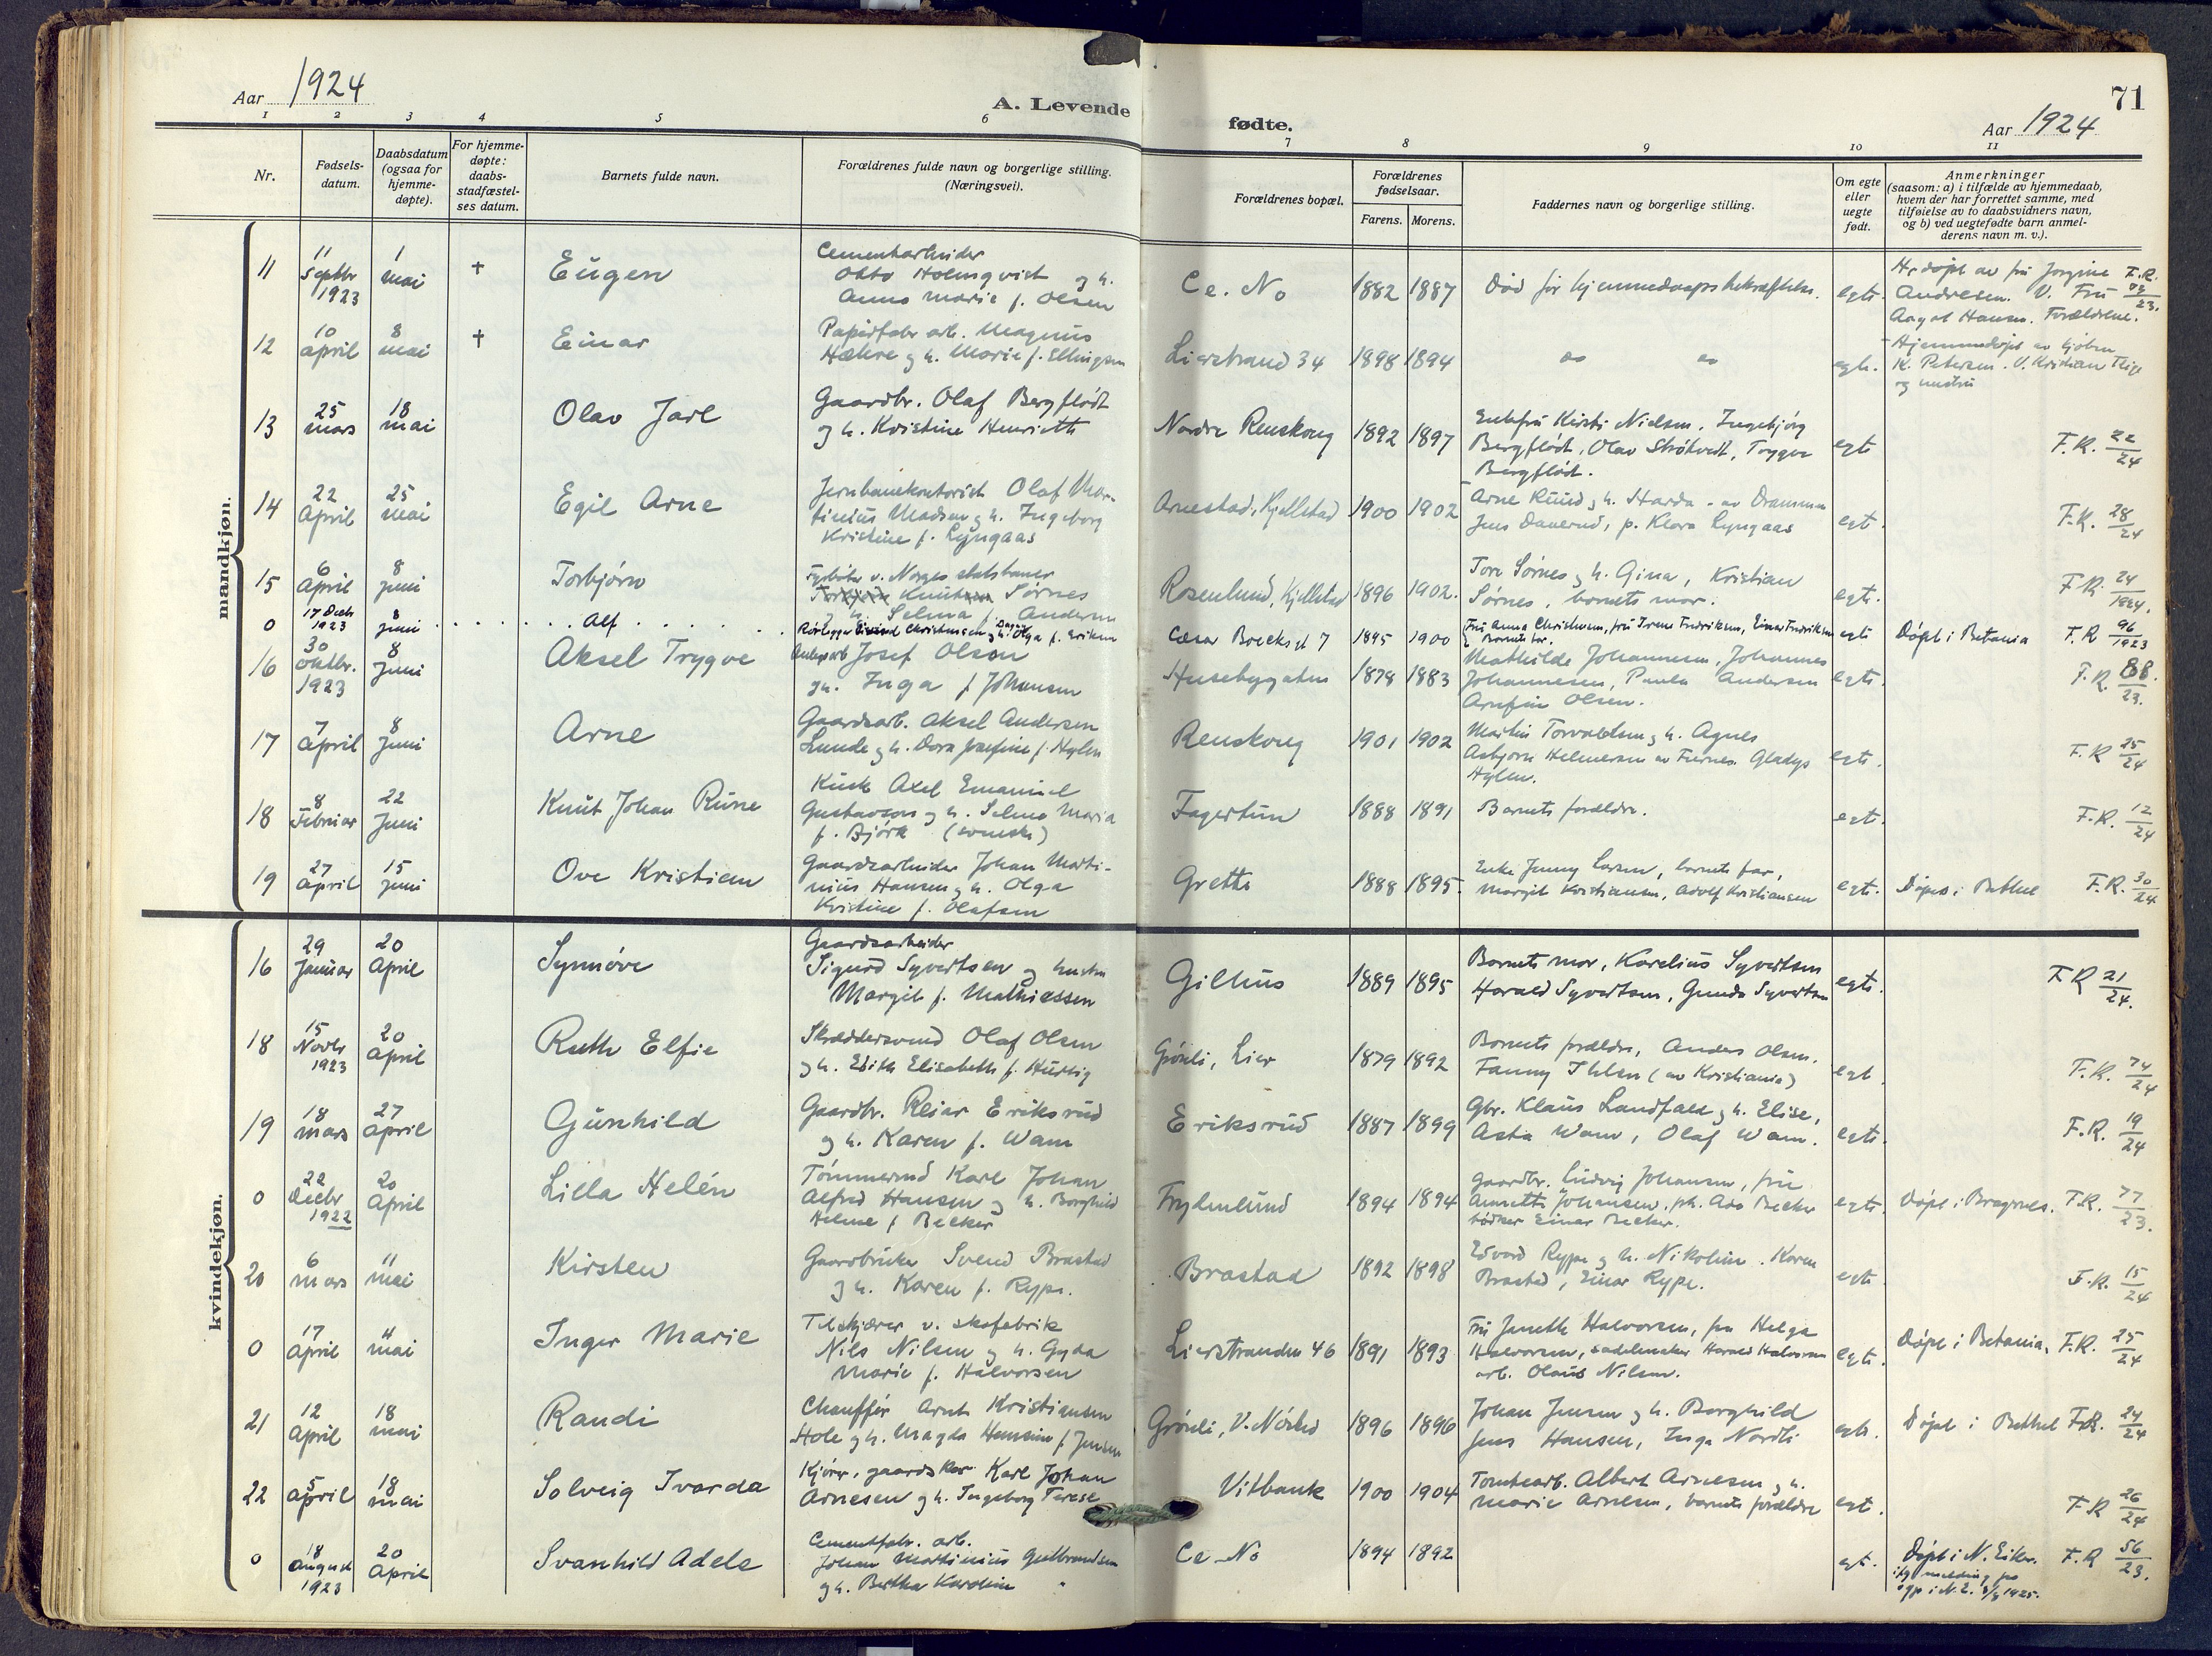 Aar 1924
A. Levende
fødte.
71
Aar 1924
1 2 3 4 5 6 7 8 9 10 11
Nr.
Fødsels-
datum.
Daabsdatum
(ogsaa for
hjemme-
døpte).
For hjemme-
døpte:
daabs-
stadfæstel-
ses datum.
Barnets fulde navn.
Forældrenes fulde navn og borgerlige stilling.
(Næringsvei).
Forældrenes bopæl.
Forældrenes
fødselsaar.
Farens. Morens.
Faddernes navn og borgerlige stilling.
Om egte
eller
uegte
født.
Anmerkninger
(saasom: a) i tilfælde av hjemmedaab,
hvem der har forrettet samme, med
tilføielse av to daabsvidners navn,
og b) ved uegtefødte barn anmel-
derens navn m. v.).
mandkjøn.
11 11 Septbr 1923 1 mai † Eugen
Cementarbeider
Otto Holmqvist og h.
Anna Marie f. Olsen
Ce. No 1882 1887 Død før hjemmedaaps bekræftelse. egte.
Hj. døpt av fru Jorgine
Andresen. V. Fru
August Hansen. Forældrene.
F.R. 23.
12 10 april 8 mai † Einar
Papirfabr. arb. Magnus
Hæhre og h. Marie f. Ellingsen
Lierstrand 34 1898 1894 do do egte.
Hjemmedøpt av
K. Petersen. V. Kristian
og hustru
13 25 mars 18 mai Olav Jarl
Gaardbr. Olaf Bergflødt
og h. Kristine Henriette
Nordre Renskoug 1892 1897
Enkefru Kirsti Nielsen, Ingebjørg
Bergflødt, Olav Strøtvedt, Trygve
Bergflødt.
egte F.R. 22/24
14 22 April 25 mai Egil Arne
Jernbanekontorist Olaf Mar-
tinius Madsen og h. Ingeborg
Kristine f. Lyngaas
Arnestad, Kjellstad 1900 1902
Arne Ruud og h. Harda - av Drammen
Jens Danerud, p. Klara Lyngaas
egte F.R. 28/24
15 6 April 8 juni Torbjørn
Fyrbøter v. Norges statsbaner
Knut Sørnes
og h. Selma f. Andersen
Rosenlund, Kjellstad 1896 1902.
Tore Sørnes og h. Gina, Kristian
Sørnes, barnets mor.
egte. F.R. 24/1924.
0 17 Decb 1923 8 juni Alf
Rørlægger Eivind Christensen og h. Olga f. Eriksen
Cæsar Boecks gt 7 1895 1900
Fru Anna Christensen, fru Irene Fredriksen, Einar Fredriksen
Barnets far.
egte Døpt i Betania F.R 96/1923
16 30 oktbr. 1923 8 Juni Aksel Trygve
Anlægsarb Josef Olsen
og h. Inga f. Johansen
Husebygaten 1878 1883
Mathilde Johannesen, Johannes
Johannesen, Paula Andersen
Arnfin Olsen.
egte. F.R. 88/23.
17 7 April 8 Juni Arne
Gaardsarb. Aksel Andersen
Lunde og h. Dora Josefine f. Hylen
Renskoug 1901 1902
Martin Torvaldsen og h. Agnes
Asbjørn Helmersen av Furnes. Gladys
Hylen.
egte. F.R 25/24
18 8 Februar 22 Juni Knut Johan Rune
Kusk Axel Emanuel
Gustavson og h. Selma Maria
f. Björk (svenske)
Fagertun 1888 1891 Barnets forældre. egte. F.R. 12/24
19 27 April 15 Juni Ove Kristian
Gaardsarbeider Johan Marti-
nius Hansen og h. Olga
Kristine f. Olafsen
Grette 1888 1895.
Enke Jenny Larsen, barnets far,
Margit Kristiansen, Adolf Kristiansen
egte. Døpt i Bethel F.R. 30/24
kvindekjøn.
16 29 Januar 20 April Synnöve
Gaardsarbeider
Sigurd Syvertsen og hustru
Margit f. Mathiassen
Gilhus 1889 1895
Barnets mor, Karelius Syvertsen
Harald Syvertsen, Gunda Syvertsen
egte. F R 21/24.
18 15 Novbr 1923 20 april Ruth Elfie
Skræddersvend Olaf Olsen
og h. Edith Elisabeth f. Hurtig
Grönli, Lier 1879 1892
Barnets forældre, Anders Olsen.
Fanny Ihlen (av Kristiania)
egt. F.R. 74/24
19 18 mars 27 April Gunhild
Gaardbr. Reiar Eriksrud
og h. Karen f. Wam
Eriksrud 1887 1899
Gbr. Klaus Landfald og h. Elise,
Asta Wam, Olaf Wam.
egte. F.R. 19/24
0 22 Decbr 1922 20 April Lilla Helén
Tømmermd Karl Johan
Alfred Hansen og h. Borghild
Helene f Becker
Frydenlund 1894 1894
Gaardbr. Ludvig Johansen, fru
Annette Johansen, pk. Asa Becker
bødker Einar Becker.
egte. Døpt i Bragernes. F.R. 77/23.
20 6 mars 11 mai Kirsten
Gaardbruker Svend Brastad
og h. Karen f. Rype.
Brastad 1892 1898
Edvard Rype og h. Nikoline. Karen
Brastad, Einar Rype.
egte F.R. 15/24
0 17 April 4 mai Inger Marie
Tilskjærer v. skofabrik
Nils Nilsen og h. Gyda
Marie f. Halvorsen
Lierstranden 46 1891 1893
Fru Janette Halvorsen, fru Helga
Halvorsen, sadelmaker Harald Halvorsen
arb. Olaus Nilsen.
egte. Døpt i Betania. F.R. 25/24
21 12 April 18 mai Randi
Chauffør Arnt Kristiansen
Hole og h. Magda Hansine f. Jensen
Grönli, V. Nösted 1896 1896
Johan Jensen og h. Borghild
Jens Hansen, Inga Nordli
egte. Døpt i Bethel F.R. 24/24
22 5 april 18 mai Solveig Ivarda
Kjører, gaardskar Karl Johan
Arnesen og h. Ingeborg Terese
Vitbank 1900 1904
Tomtearb. Albert Arnesen og h.
Marie Arnesen, barnets forældre
egt. F R 26/24
0 18 august 1923 20 April Svanhild Adele
Cementfabr. arb.
Johan Martinius Gulbrandsen
og h. Bertha Karoline
Ce No 1894 1892 egt.
Døpt i N. Eiker.
ifg. melding fra
spr i N. E. 1925.
F.R 56/23.